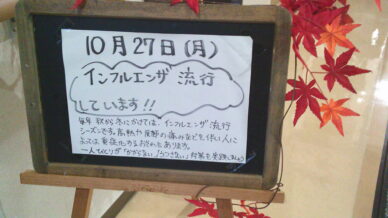 10月27日(月)
インフルエンザ 流行
しています!!
毎年 秋から冬にかけては、インフルエンザ 流行
シーズンです。高熱や関節の痛みなどを伴い人に
よっては重症化するおそれもあります。
一人ひとりが「かからない」「うつさない」対策を実践しましょう